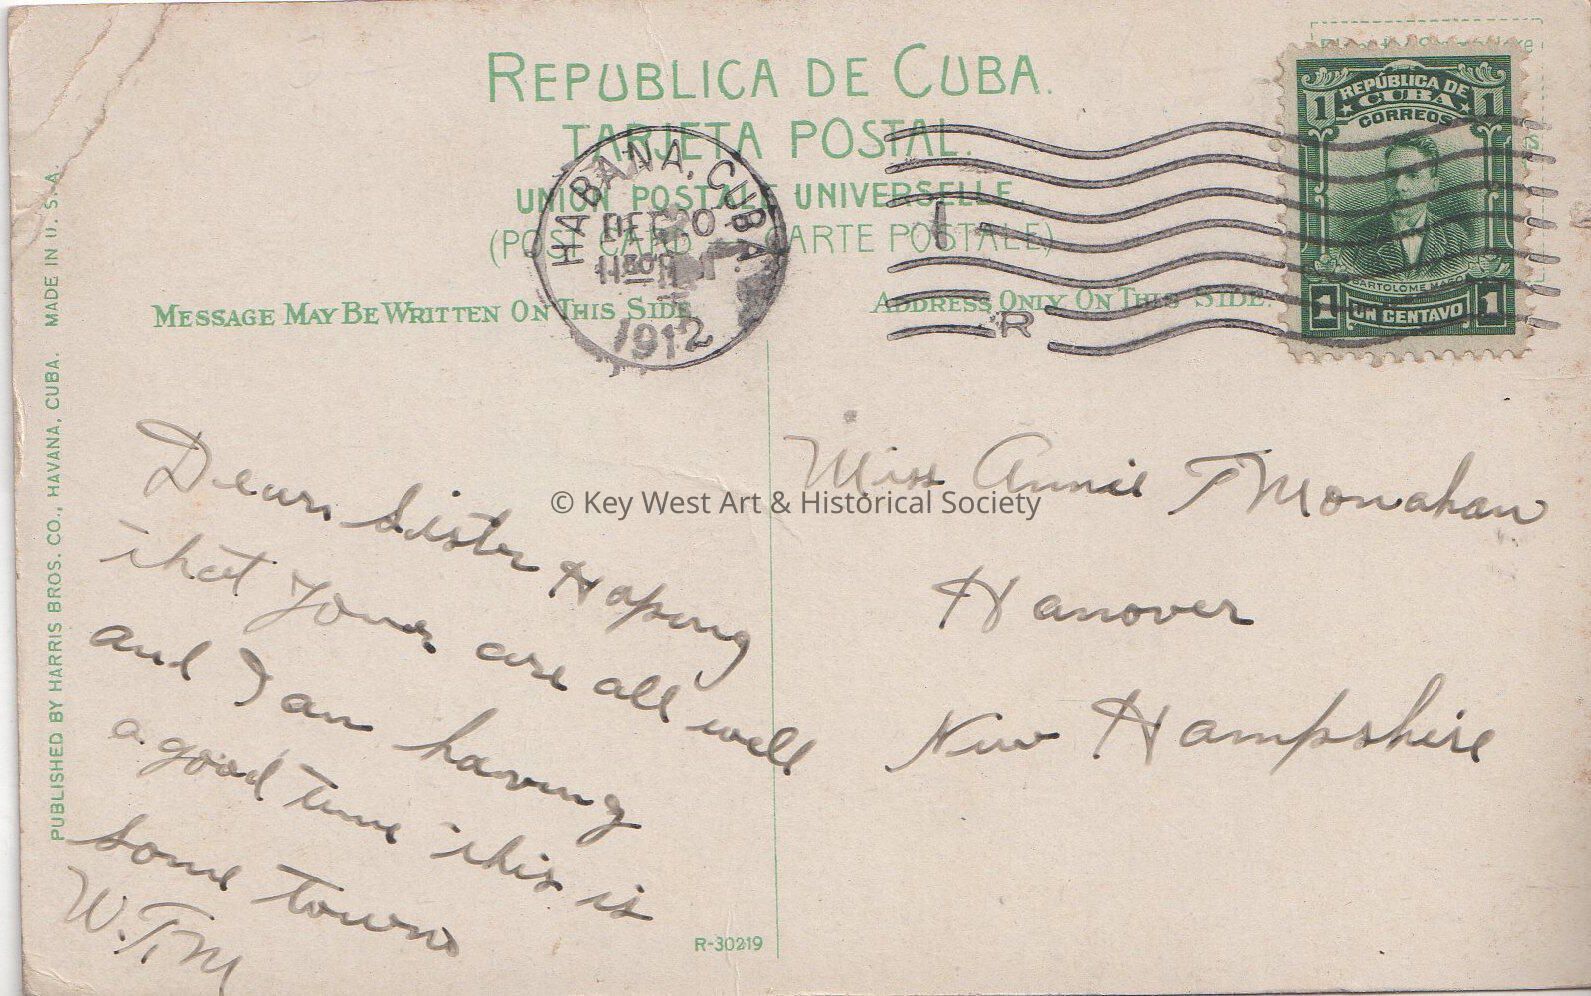 REPUBLICA DE CUBA.
TARJETA POSTAL.
UNION POSTALE UNIVERSELLE.
(POST CARD CARTE POSTALE)
MESSAGE MAY BE WRITTEN ON THIS SIDE
ADDRESS ONLY ON THIS SIDE.
HABANA, CUBA.
DEC 20
1130 P
1912
R
REPÚBLICA DE
CUBA
CORREOS
1 1
BARTOLOME MASO
1 UN CENTAVO 1
PUBLISHED BY HARRIS BROS. CO., HAVANA, CUBA. MADE IN U. S. A.
Dear Sister Hoping
that your are all well
and I am having
a good time this is
some town
W.T.M
Miss Annie T Monahan
Hanover
New Hampshire
© Key West Art & Historical Society
R-30219